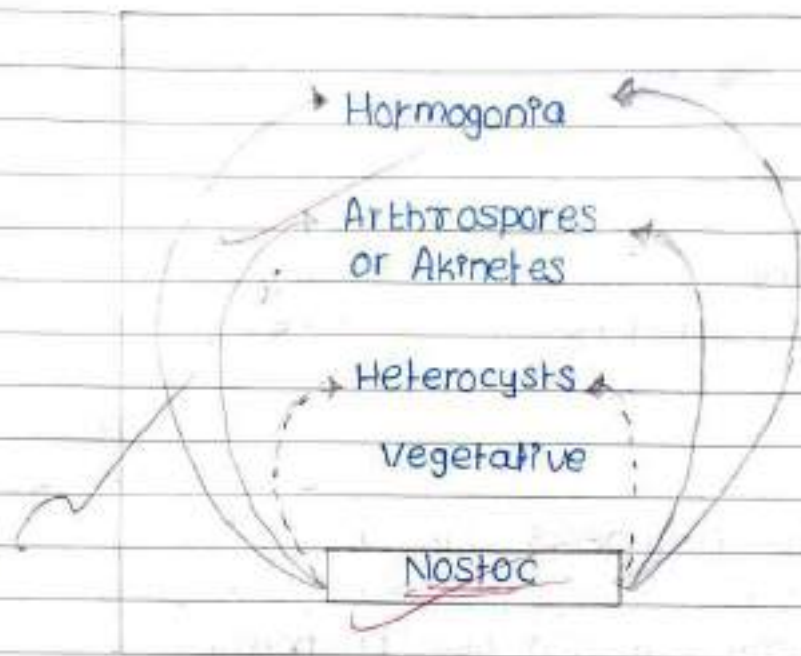 Hormogonia
Arthrospores
or Akinetes
Heterocysts
Vegetative
Nostoc